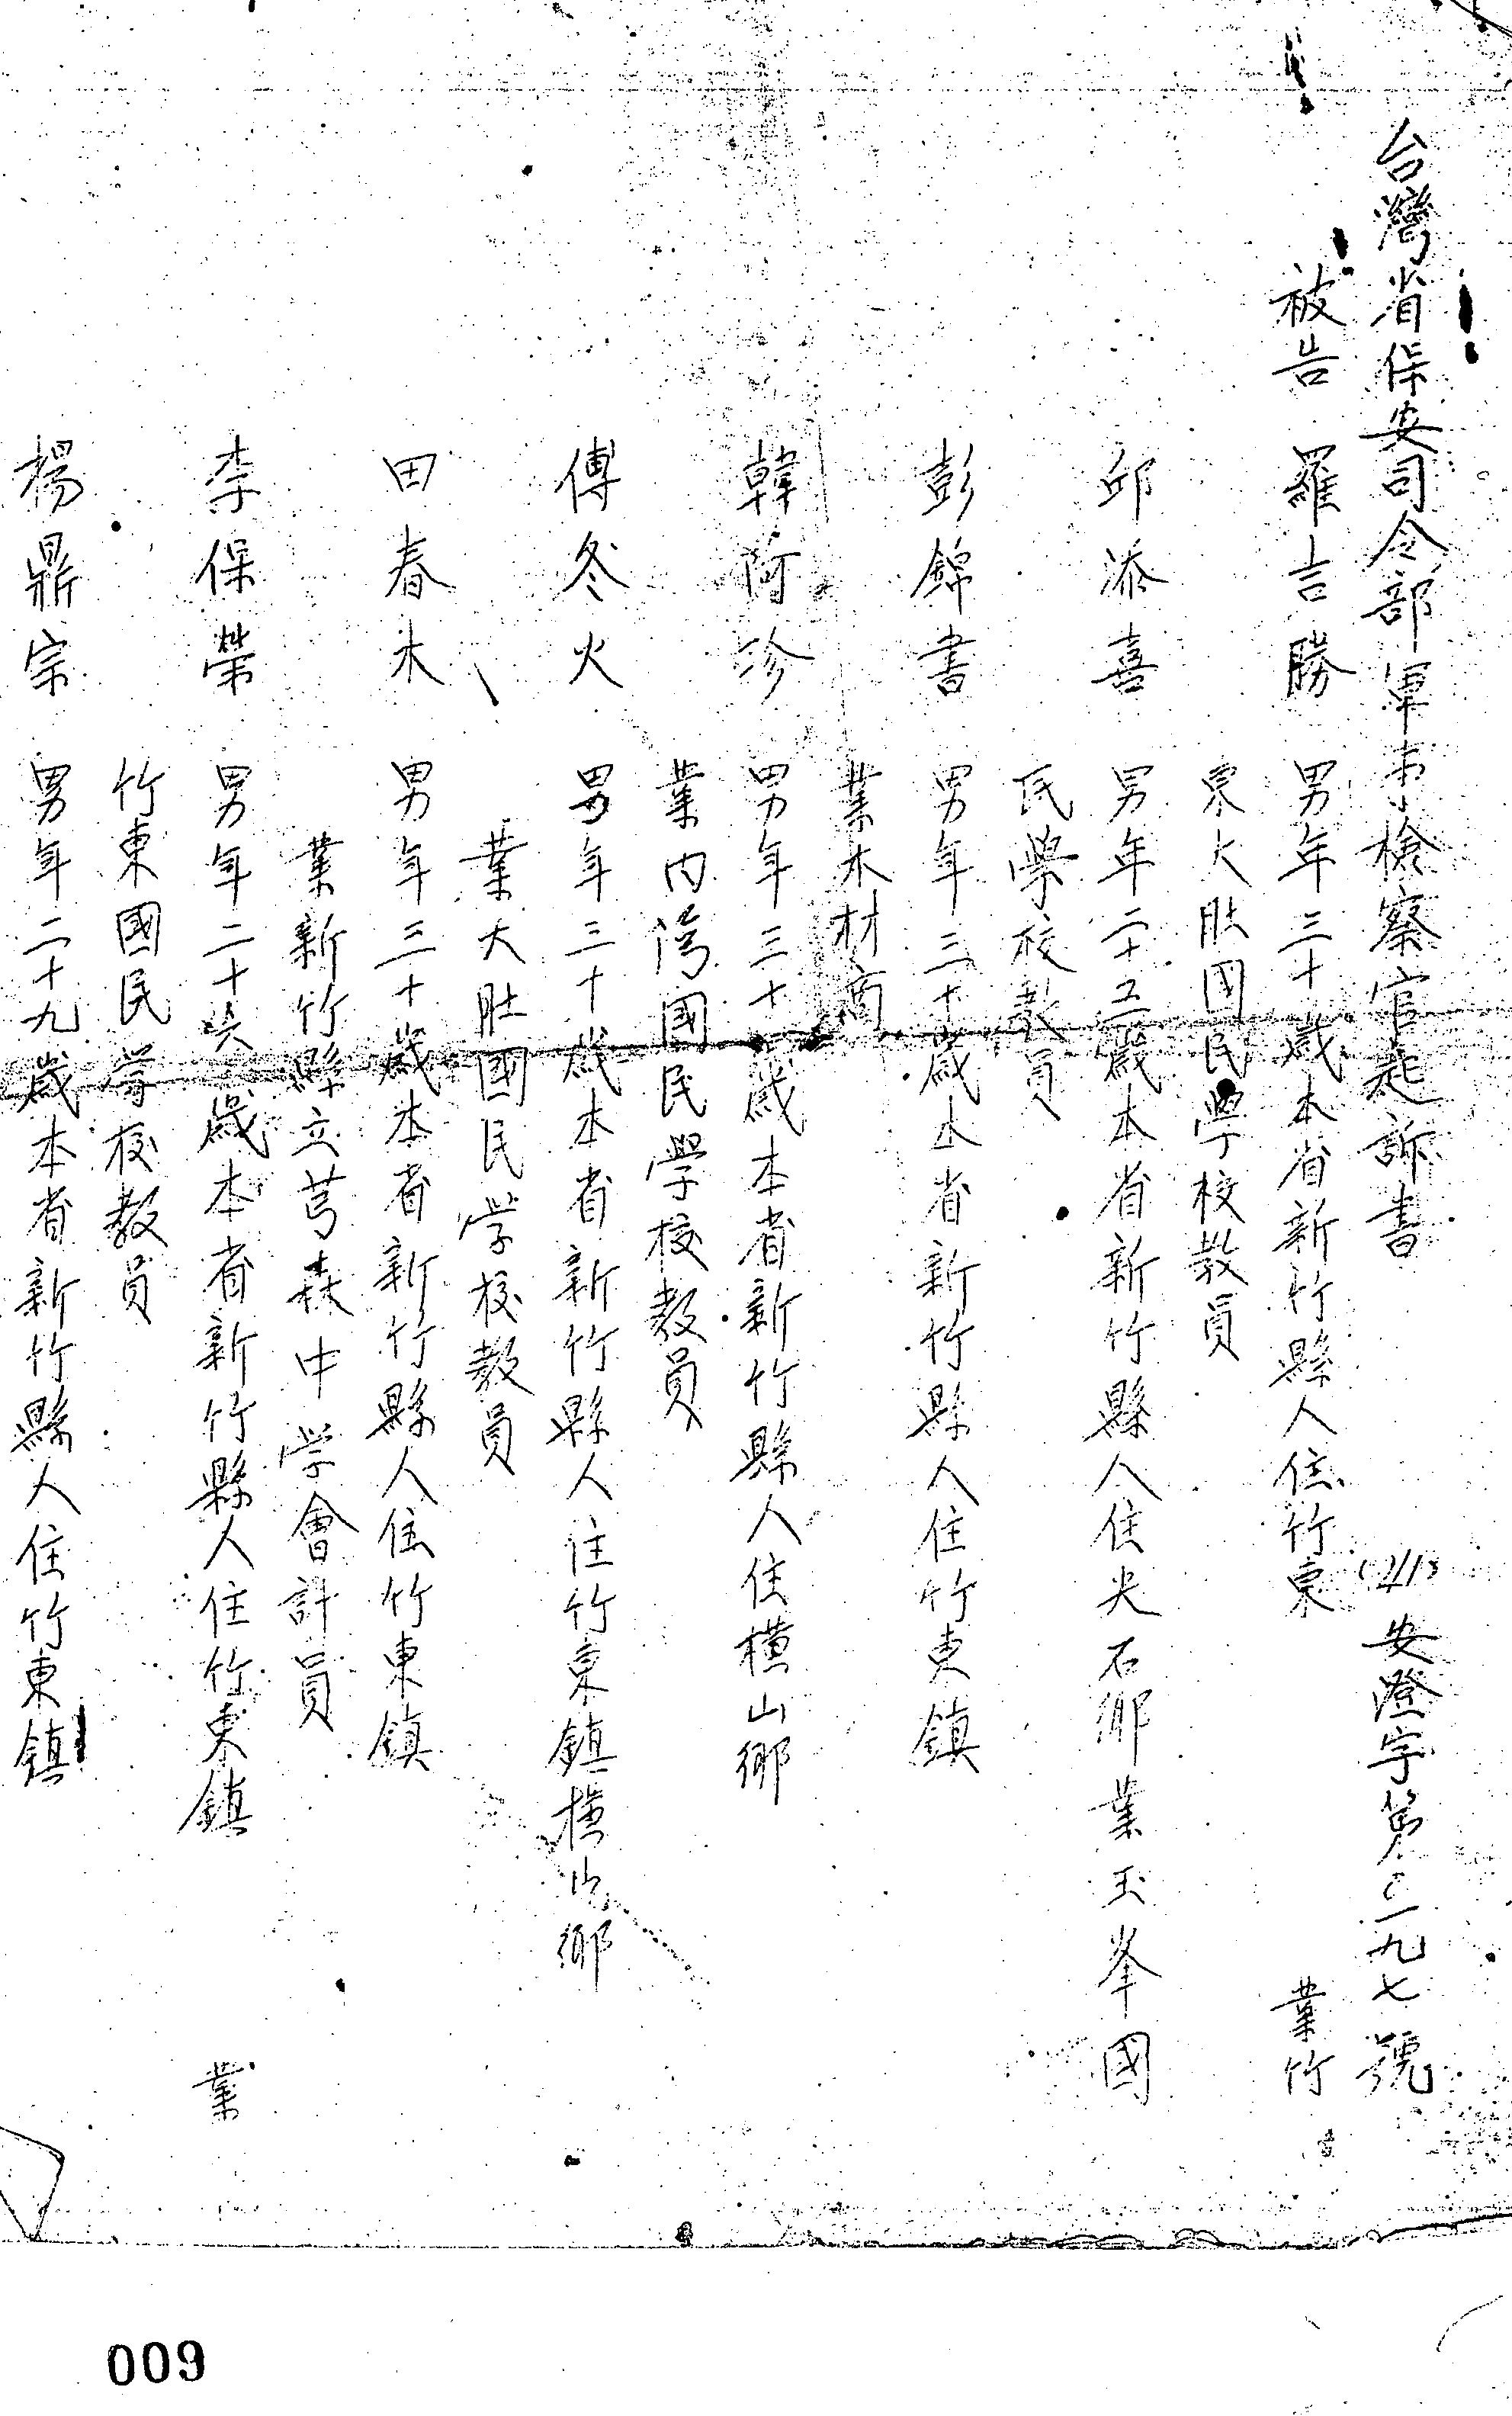 台灣省保安司令部軍事檢察官起訴書 安澄字第〇一九七號
被告 羅吉勝 男年三十歲本省新竹縣人住竹東 業竹
東大肚國民學校教員
邱添喜 男年二十五歲本省新竹縣人住尖石鄉業玉峯國
民學校教員
彭錦書 男年三十歲本省新竹縣人住竹東鎮
業木材商
韓阿珍 男年三十歲本省新竹縣人住橫山鄉
業內湾國民學校教員
傅冬火 男年三十歲本省新竹縣人住竹東鎮橫山鄉
業大肚國民学校教員
田春木 男年三十歲本省新竹縣人住竹東鎮
業新竹縣立芎森中学會計員
李保榮 男年二十六歲本省新竹縣人住竹東鎮 業
竹東國民学校教員
楊鼎宗 男年二十九歲本省新竹縣人住竹東鎮
009